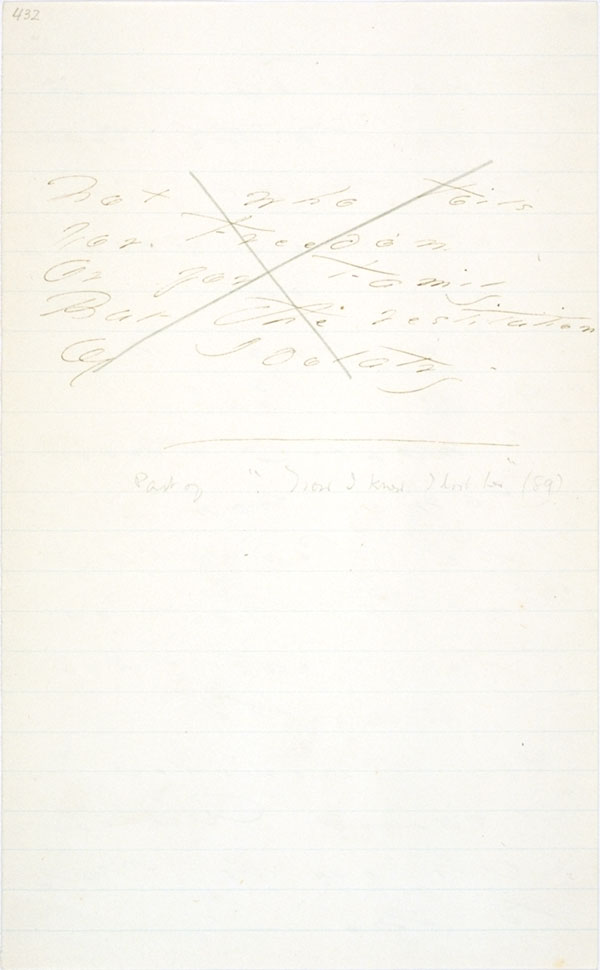 432
Not who toils
for Freedom
Or for Family
But the restitution
Of Idolatry.
Part of "Now I knew I lost her" (89)